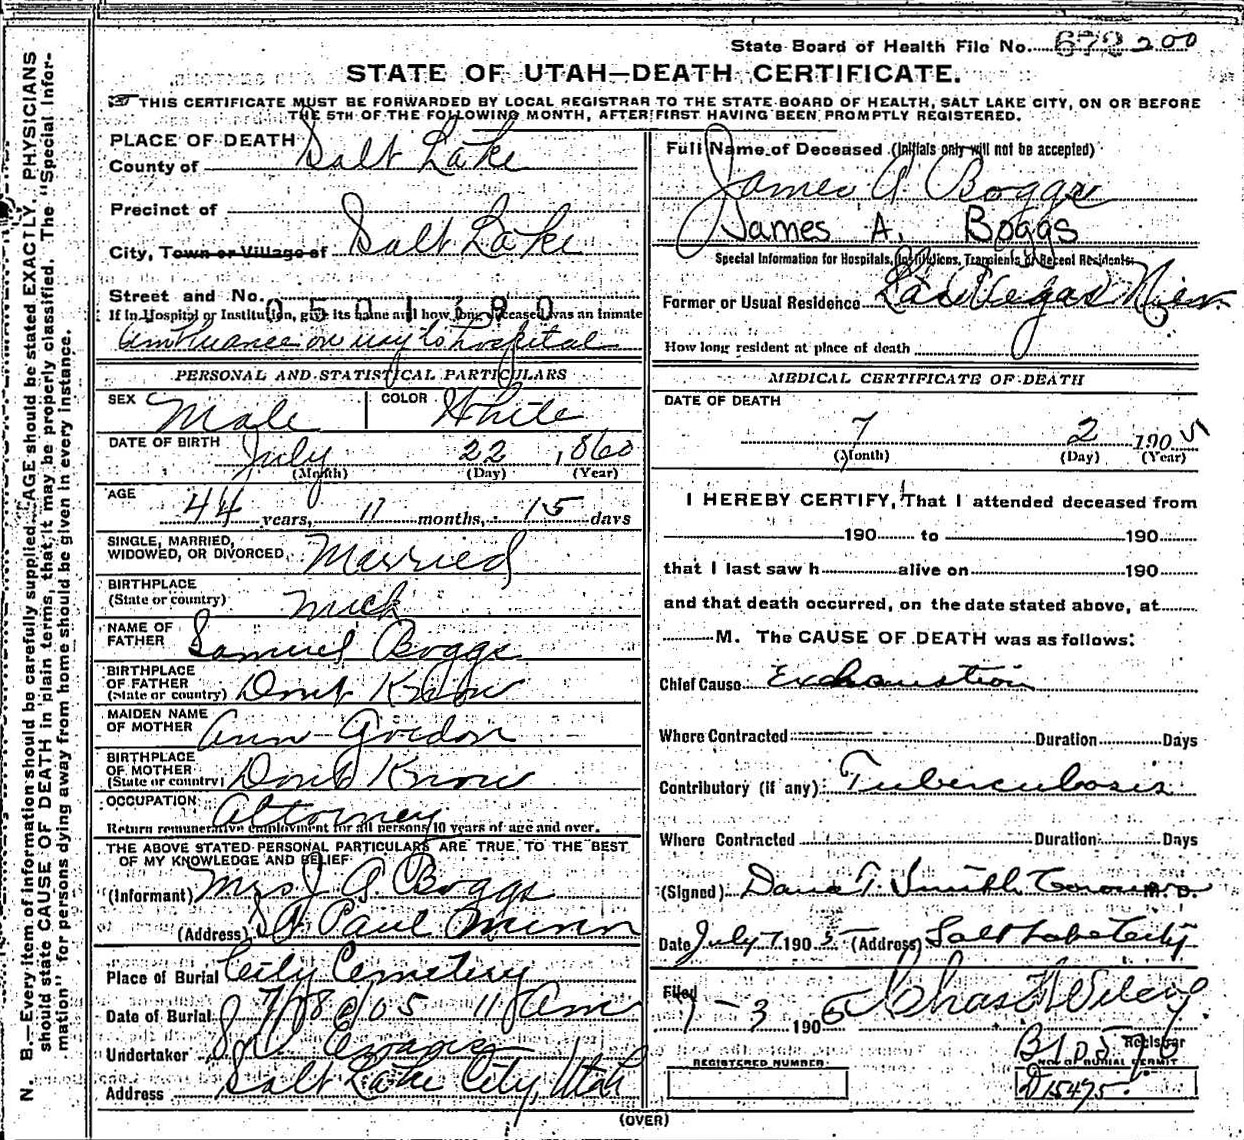 State Board of Health File No. 672 200
STATE OF UTAH—DEATH CERTIFICATE.
THIS CERTIFICATE MUST BE FORWARDED BY LOCAL REGISTRAR TO THE STATE BOARD OF HEALTH, SALT LAKE CITY, ON OR BEFORE
THE 5TH OF THE FOLLOWING MONTH, AFTER FIRST HAVING BEEN PROMPTLY REGISTERED.
N. B.—Every item of information should be carefully supplied. AGE should be stated EXACTLY. PHYSICIANS
should state CAUSE OF DEATH in plain terms, that it may be properly classified. The "Special Infor-
mation" for persons dying away from home should be given in every instance.
PLACE OF DEATH
County of Salt Lake
Precinct of
City, Town or Village of Salt Lake
Street and No. 0501390
If in Hospital or Institution, give its name and how long deceased was an inmate
Ambulance on way to hospital
PERSONAL AND STATISTICAL PARTICULARS
SEX Male COLOR White
DATE OF BIRTH July 22, 1860
(Month) (Day) (Year)
AGE
44 years, 11 months, 15 days
SINGLE, MARRIED,
WIDOWED, OR DIVORCED, Married
BIRTHPLACE
(State or country) Mich
NAME OF
FATHER Samuel Boggs
BIRTHPLACE
OF FATHER
(State or country) Dont Know
MAIDEN NAME
OF MOTHER Ann Gordon
BIRTHPLACE
OF MOTHER
(State or country) Dont Know
OCCUPATION Attorney
Return remunerative employment for all persons 10 years of age and over.
THE ABOVE STATED PERSONAL PARTICULARS ARE TRUE TO THE BEST
OF MY KNOWLEDGE AND BELIEF
(Informant) Mrs J. A. Boggs
(Address) St Paul Minn
Place of Burial City Cemetery
Date of Burial 7/8 1905 11 Am
Undertaker Evans
Address Salt Lake City, Utah
Full Name of Deceased (Initials only will not be accepted)
James A Boggs
James A. Boggs
Special Information for Hospitals, Institutions, Transients or Recent Residents:
Former or Usual Residence Las Vegas Nev.
How long resident at place of death
MEDICAL CERTIFICATE OF DEATH
DATE OF DEATH
7 2 1905
(Month) (Day) (Year)
I HEREBY CERTIFY, That I attended deceased from
190 to 190
that I last saw h alive on 190
and that death occurred, on the date stated above, at
M. The CAUSE OF DEATH was as follows:
Chief Cause Exhaustion
Where Contracted Duration Days
Contributory (if any): Tuberculosis
Where Contracted Duration Days
(Signed) Dana T. Smith Coroner M. D.
Date July 7 1905 (Address) Salt Lake City
Filed
7-3 1905 Chas
Registrar
B1057
REGISTERED NUMBER. NO. OF BURIAL PERMIT
D15475
(OVER)